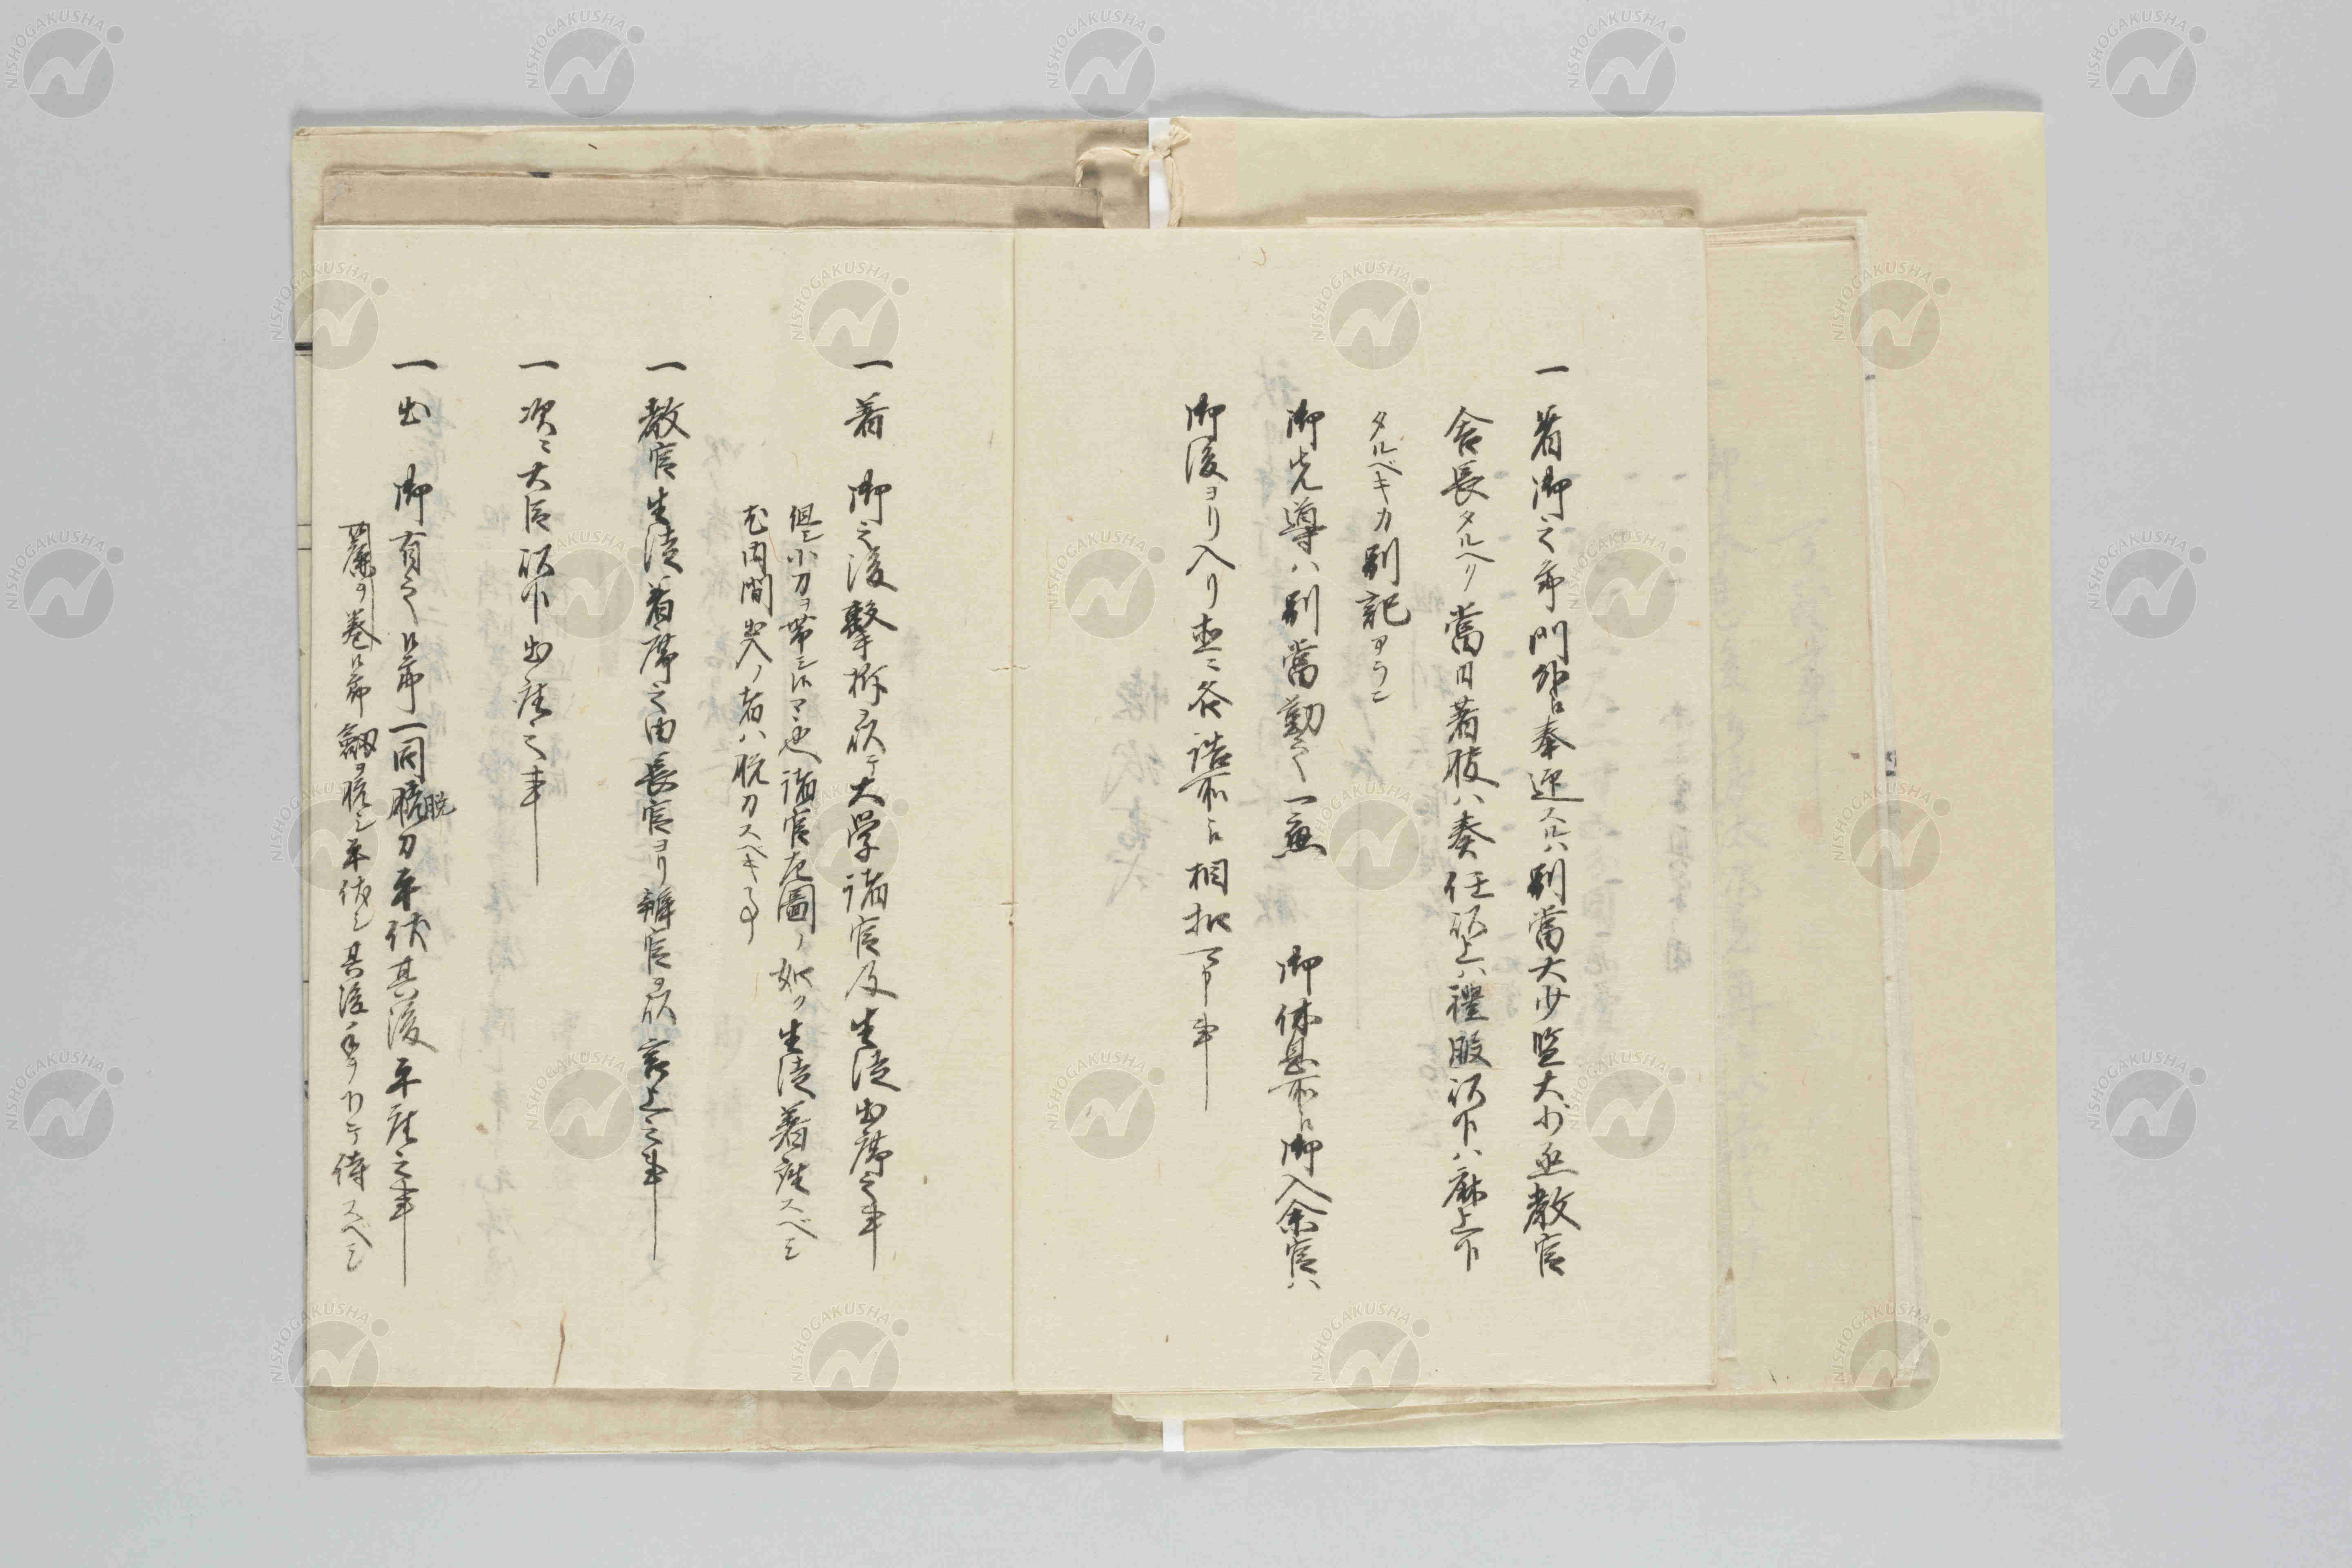 一著御之節門外ニ奉迎スルハ別當大少監大少丞教官
舎長タルヘク當日著服ハ奏任以上ハ禮服以下ハ麻上下
タルベキカ別記アラン
御先導ハ別當勤之一兼 御休息所ニ御入余官ハ
御後ヨリ入リ直ニ各詰所ニ相扣可申事
一著 御之後擊柝ヲ以テ大学諸官及生徒出席之事
但シ小刀ヲ帯シ 諸官左圖ノ如ク生徒著座スベシ
尤内間出入ノ者ハ脱刀スベキ事
一教官生徒着席之由長官ヨリ辨官ヲ以 言上之事
一次ニ大臣以下出座之事
一出 御有之候節一同脱刀平伏其後平座之事
脱
簾ヲ巻候節劔ヲ脱シ平伏シ其後手ヲツカテ侍スベシ
NISHOGAKUSHA